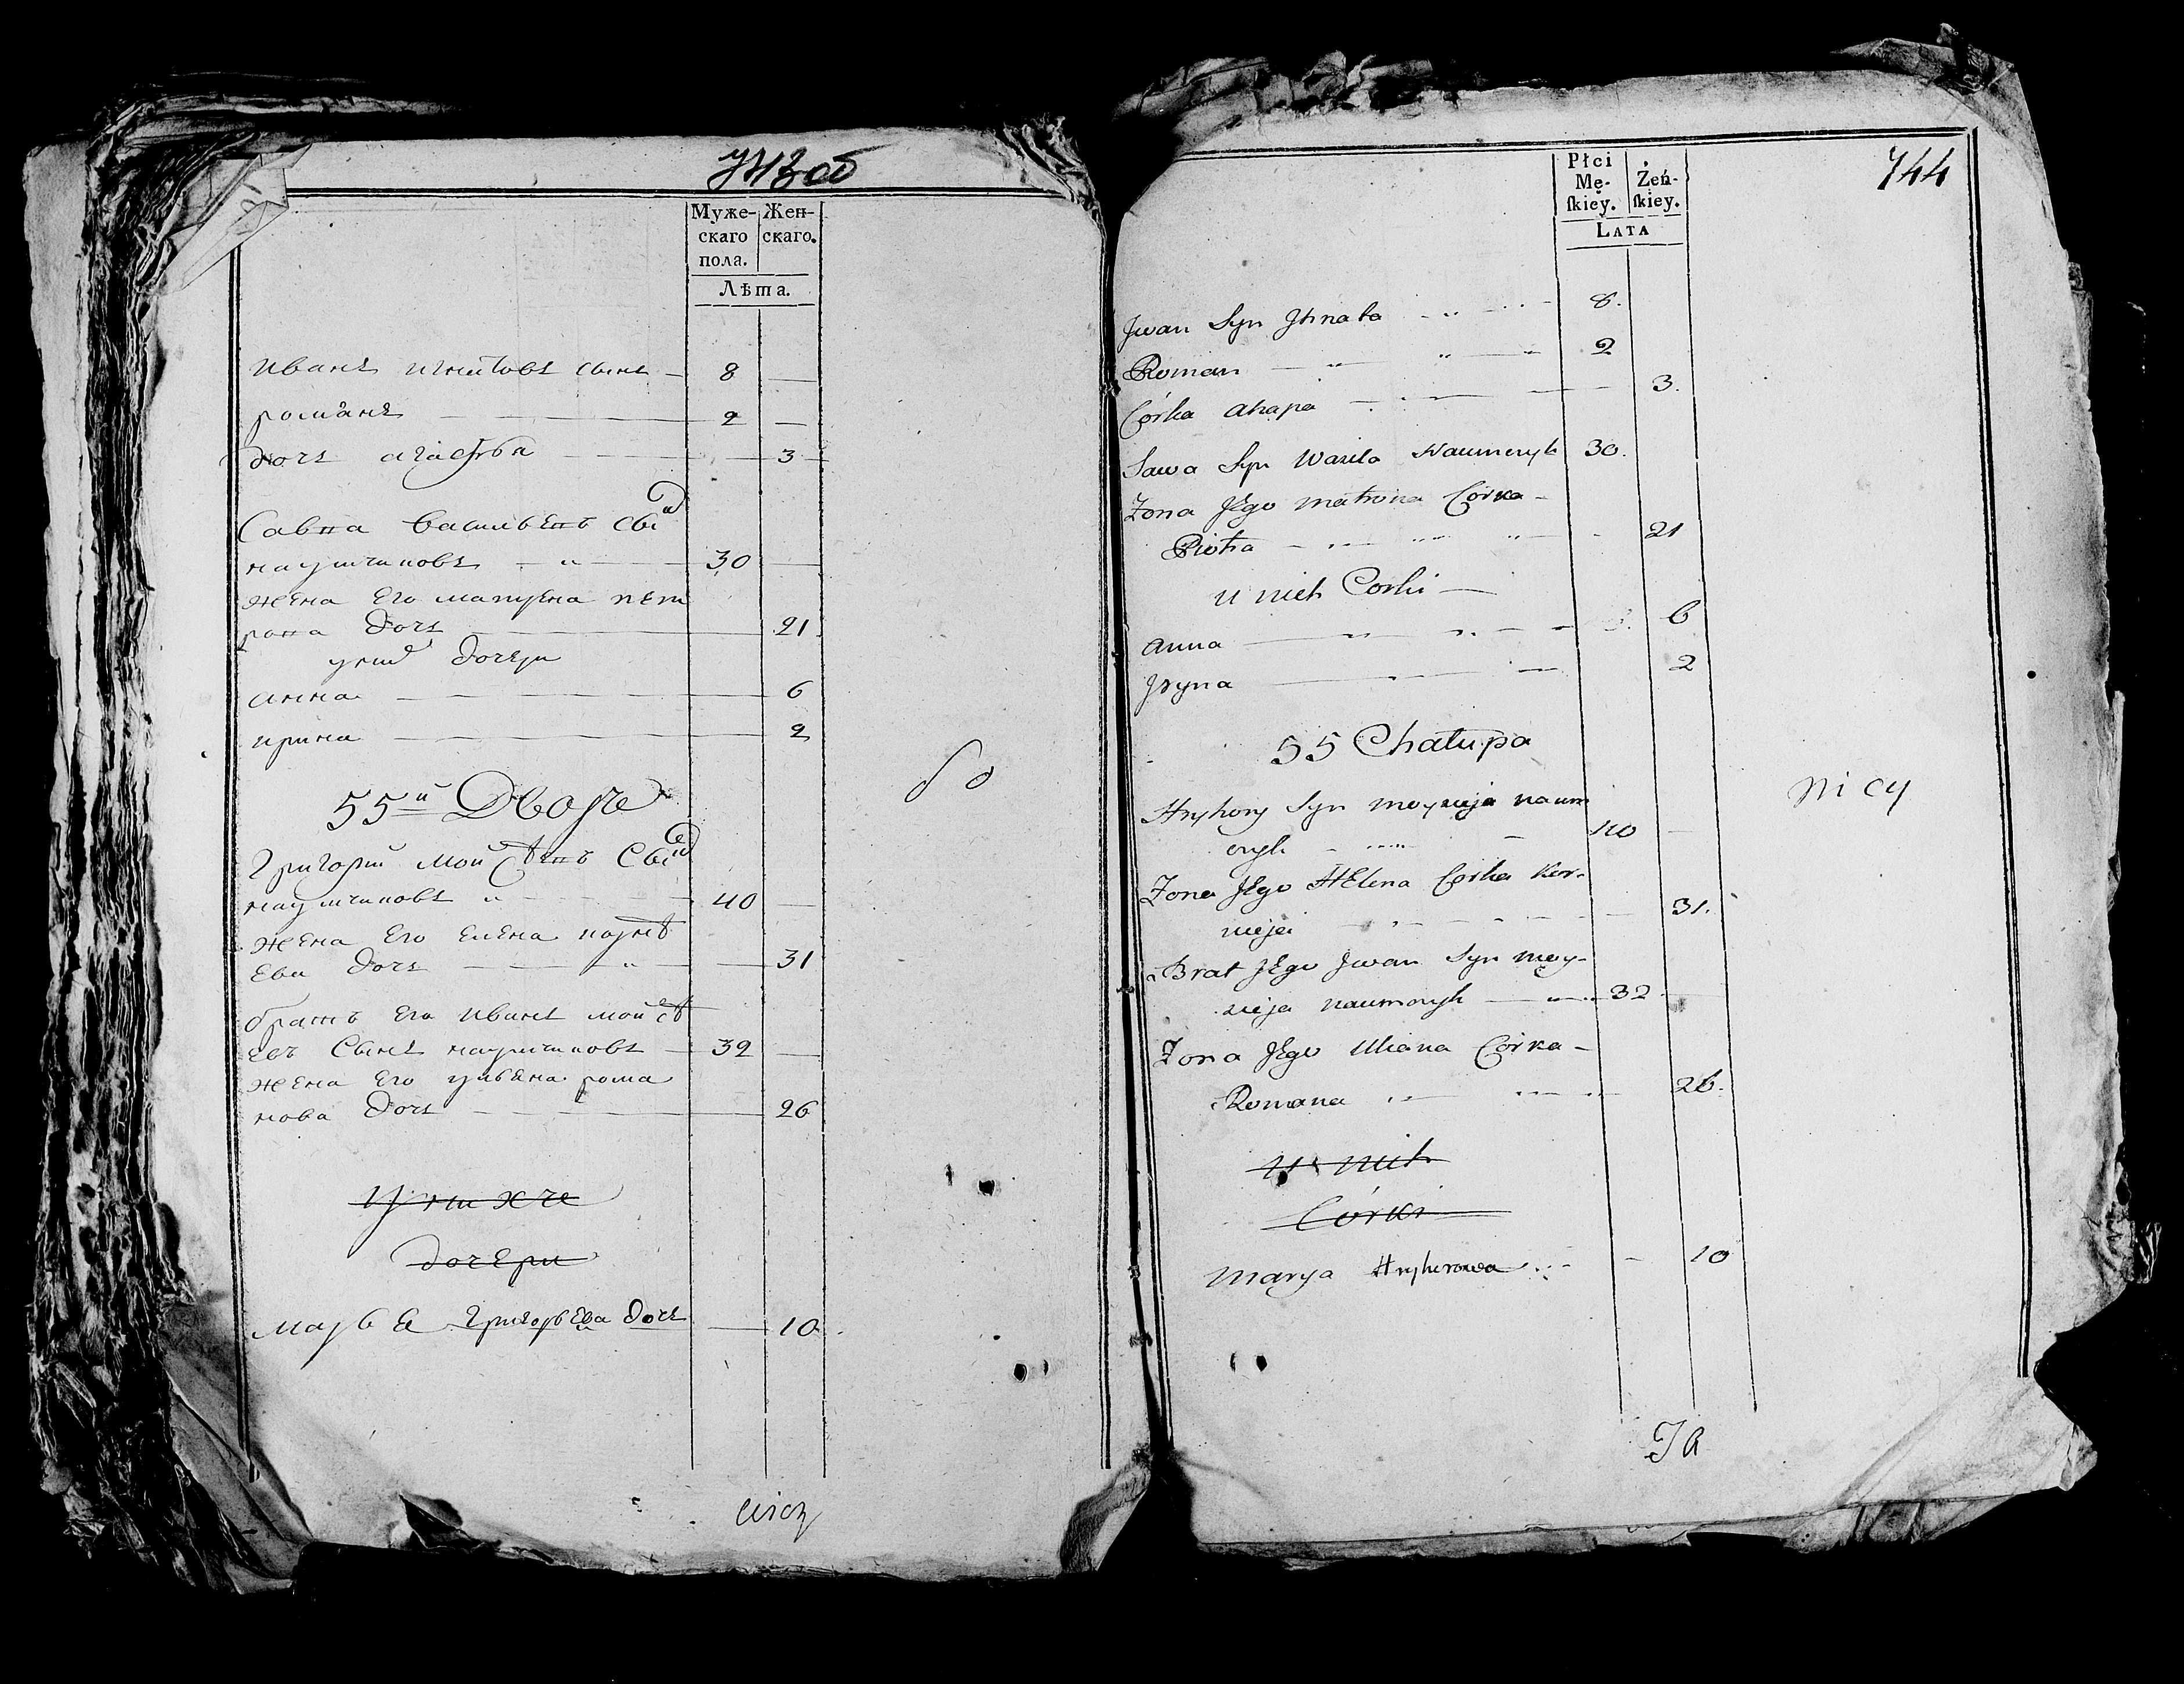 743 об
Муже-
скаго
пола.
Жен-
скаго.
Лѣта.
Иванъ Игнатовъ сынъ 8
романъ 2
дочь агафья 3
Савва васильевъ сынъ
наумчиковъ 30
жена его матрена пет
рова дочь 21
у них дочери
анна 6
ирина 2
55й Дворъ
Григорий Мойсѣевъ Сынъ
наумчиковъ 40
жена его елена корнѣ
ева дочь 31
братъ его иванъ мойсѣ
евъ Сынъ наумчиковъ 32
жена его ульяна рома
нова дочь 26
У них же
дочери
Марья Григорьева дочь 10
744
Płci
Mę-
ſkiey.
Żeń-
ſkiey.
LATA
Jwan Syn Jhnata 8.
Roman 2
Córka ahapa 3.
Sawa Syn Wasila Naumczyk 30.
Żona Jego matrona Córka
Piotra 21
u nich Corki
anna 6
Jryna 2
55 Chałupa
Hryhory Syn moyzieja naum
czyk 40
Żona Jego HElena Córka Kor-
nieja 31.
Brat Jego Jwan Syn moy-
zieja naumczyk 32
Żona Jego Uliana Córka
Romana 26.
u nich
Córki
marya Hryhorowa 10